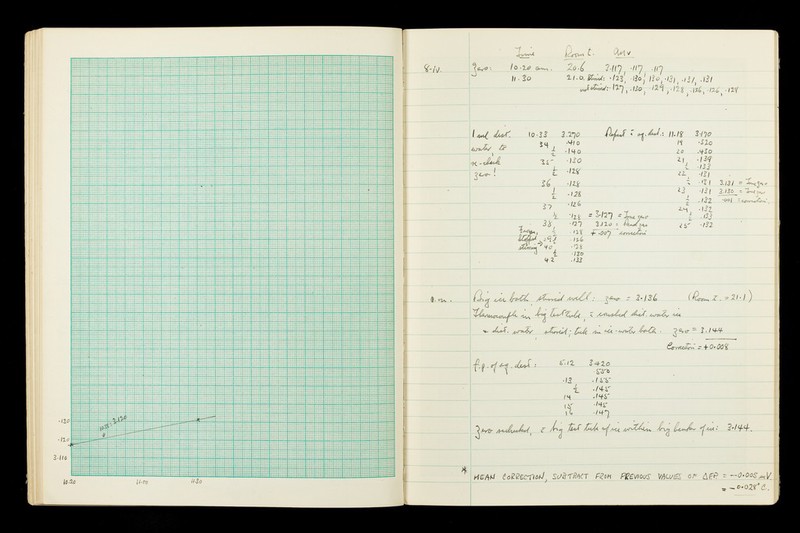 ·130
10.35: 3.120
·120
3.110
10.20 11.00 11.20
Time Room t. mv
8-IV. Zero: 10·20 am. 20·6 3.117, ·117, ·117
11·30 21.0. Stirred: ·123, ·130, 130, ·131, ·131, ·131
not stirred: 127, ·130, ·129, ·128, ·126, ·126, ·128
1 ml dist. 10·33 3.270 Repeat aq. dest.: 11.18 3.170
water to 34 ·140 19 ·220
½ ·140 20 ·430
re-check 35 ·130 21 ·139
zero! ½ ·128 ½ ·133
36 ·128 22 ·131
½ ·128 ½ ·131 3.131 = True zero
37 ·126 23 ·131 3.130 =
½ ·128 = 3.127 = True zero ½ ·132 ·001 : correction.
38 ·127 3.120 : Read zero 24 ·132
½ ·128 + ·007 correction ½ ·133
stopped 39½ ·126 25 ·132
stirring 40 ·128
½ ·130
42 ·133
p.m. Big ice bottle, stirred well: zero = 3·136 (Room t. = 21·1)
Thermocouple in big test tube, crushed dist. water ice
+ dist. water, stirred; tube in ice-water bottle. zero = 3.144
Correction = + 0·008
f.p. of aq. dest: 5.12 3.420
·550
·13 ·155
½ ·145
14 ·145
15 ·145
16 ·147
Zero rechecked, big test tube of ice within big beaker of ice: 3·144.
* MEAN CORRECTION, SUBTRACT FROM PREVIOUS VALUES OF ΔEP. = -0·005 mV.
= - 0·028°C.